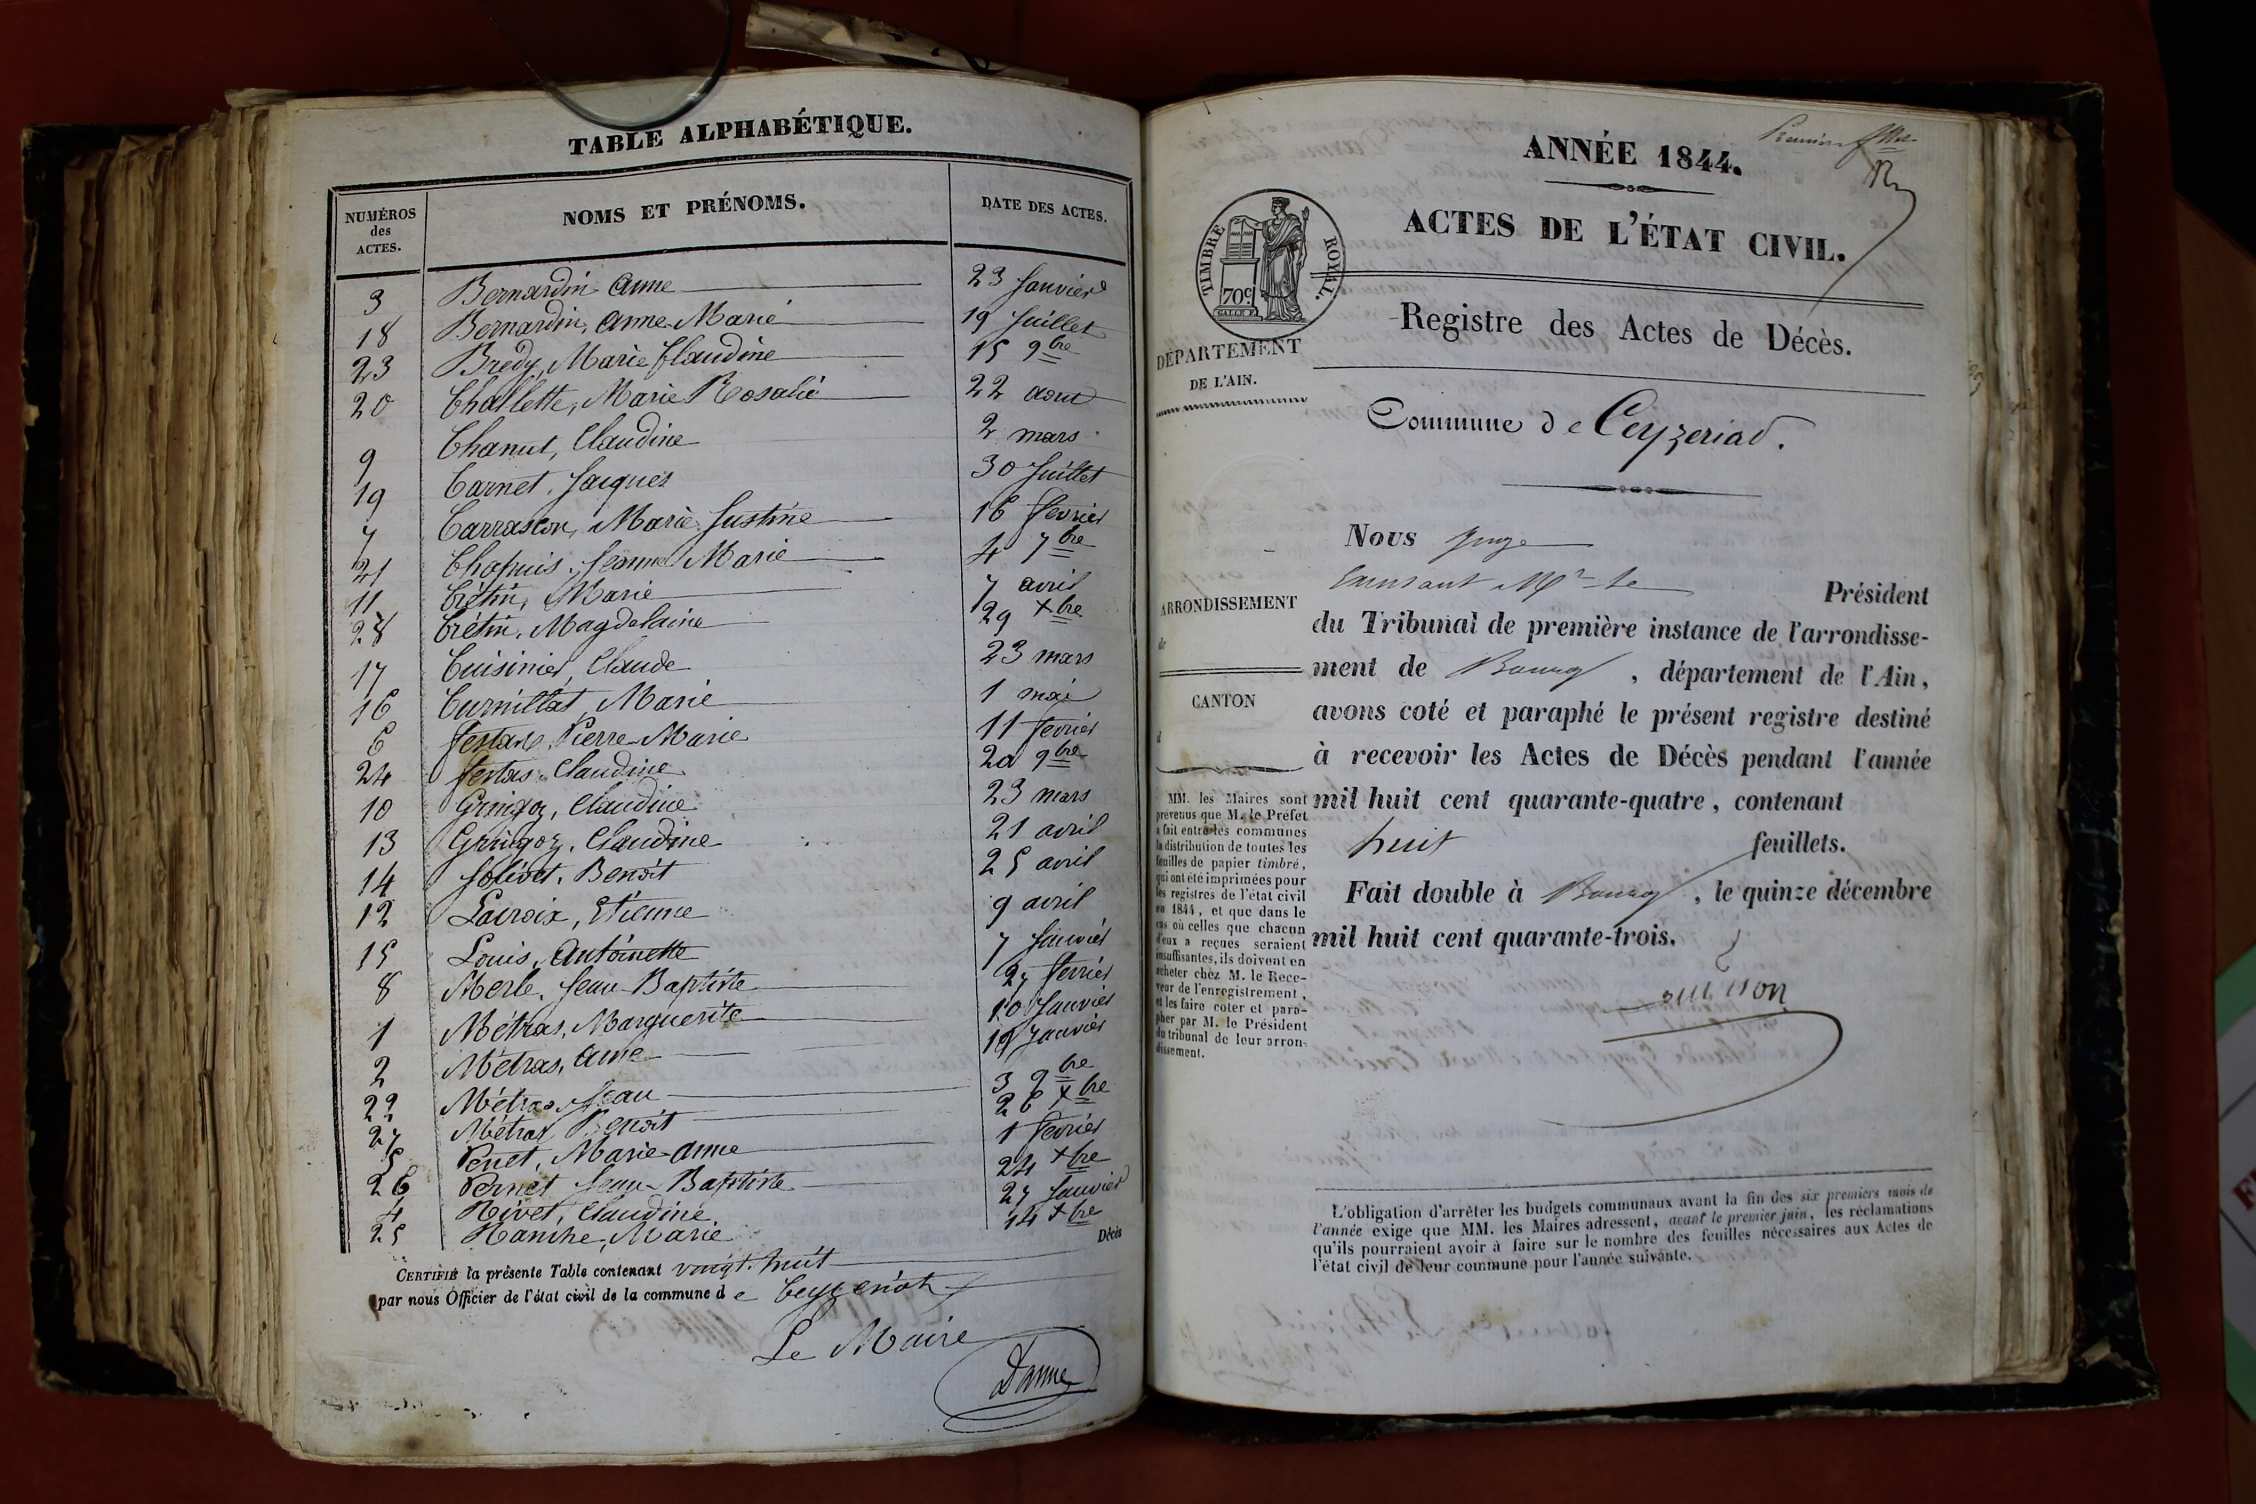 TABLE ALPHABÉTIQUE.
NUMÉROS des ACTES. NOMS ET PRÉNOMS. DATE DES ACTES.
3 Bernardin Anne 23 Janvier
18 Bernardin, Anne Marie 19 Juillet
23 Bredy, Marie Claudine 15 9bre
20 Challette, Marie Rosalie 22 aout
9 Chanut, Claudine 2 mars
19 Carnet, Jacques 30 Juillet
7 Marie Justine 16 fevrier
21 Chapuis, Jeanne Marie 4 7bre
11 Crétin, Marie 7 avril
28 Crétin, Magdelaine 29 Xbre
17 Cuisinier, Claude 23 mars
16 Curnillat, Marie 1 mai
6 Pierre Marie 11 fevrier
24 Claudine 20 9bre
10 Claudine 23 mars
13 Gringoz, Claudine 21 avril
14 Jolivet, Benoît 25 avril
12 Lacroix, Etienne 9 avril
15 Louis, Antoinette 7 Janvier
8 Merle, Jean Baptiste 27 fevrier
1 Métras, Marguerite 10 Janvier
2 Métras, Anne 19 Janvier
22 Métras, Jean 3 9bre
27 Métras Benoit 26 Xbre
5 Perret, Marie Anne 1 fevrier
26 Pernet Jean Baptiste 24 Xbre
4 Rivet, Claudine 27 Janvier
25 Marie 14 Xbre
Décès
CERTIFIÉ la présente Table contenant vingt-huit
par nous Officier de l'état civil de la commune de Ceyzeriat
Le Maire
Danne
Premier
ANNÉE 1844.
ACTES DE L'ÉTAT CIVIL.
TIMBRE ROYAL.
70c
DÉPARTEMENT
DE L'AIN.
Registre des Actes de Décès.
Commune de Ceyzeriad.
Nous Juge
Président
du Tribunal de première instance de l'arrondisse-
ment de Bourg, département de l'Ain,
avons coté et paraphé le présent registre destiné
à recevoir les Actes de Décès pendant l'année
mil huit cent quarante-quatre, contenant
huit feuillets.
Fait double à Bourg, le quinze décembre
mil huit cent quarante-trois.
ARRONDISSEMENT
de
CANTON
d
MM. les Maires sont
prévenus que M. le Préfet
a fait entre les communes
la distribution de toutes les
feuilles de papier timbré,
qui ont été imprimées pour
les registres de l'état civil
en 1844, et que dans le
cas où celles que chacun
d'eux a reçues seraient
insuffisantes, ils doivent en
acheter chez M. le Rece-
veur de l'enregistrement,
et les faire coter et para-
pher par M. le Président
du tribunal de leur arron-
dissement.
L'obligation d'arrêter les budgets communaux avant la fin des six premiers mois de
l'année exige que MM. les Maires adressent, avant le premier juin, les réclamations
qu'ils pourraient avoir à faire sur le nombre des feuilles nécessaires aux Actes de
l'état civil de leur commune pour l'année suivante.